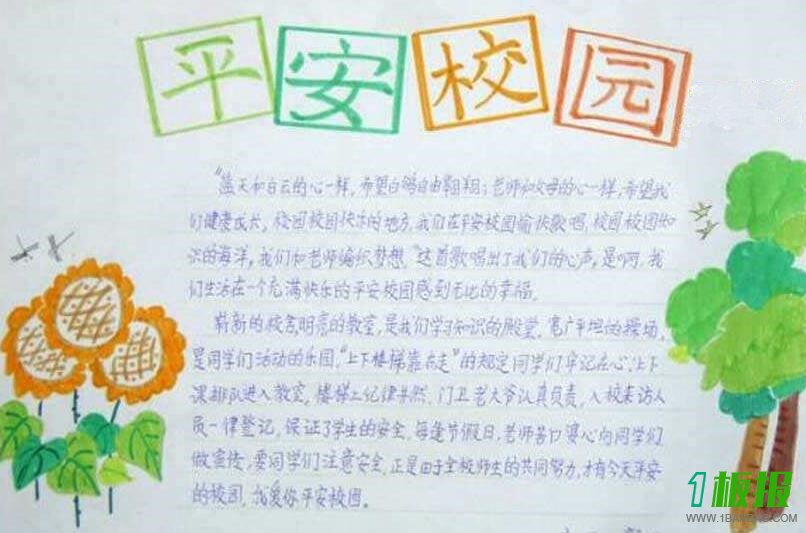 平安校园
"蓝天和白云的心一样,希望白鸽自由翱翔;老师和父母的心一样,希望我
们健康成长,校园校园快乐的地方,我们在平安校园愉快歌唱,校园校园知
识的海洋,我们和老师编织梦想."这首歌唱出了我们的心声,是啊,我
们生活在一个充满快乐的平安校园感到无比的幸福。
崭新的校舍,明亮的教室,是我们学习知识的殿堂,宽广平坦的操场,
是同学们活动的乐园,"上下楼梯靠右走"的规定同学们牢记在心,上下
课排队进入教室,楼梯上纪律井然,门卫老大爷认真负责,入校来访人
员一律登记,保证了学生的安全,每逢节假日,老师苦口婆心向同学们
做宣传,要同学们注意安全,正是由于全校师生的共同努力,才有今天平安
的校园,我爱你平安校园。
1板报
WWW.1BANBAO.COM